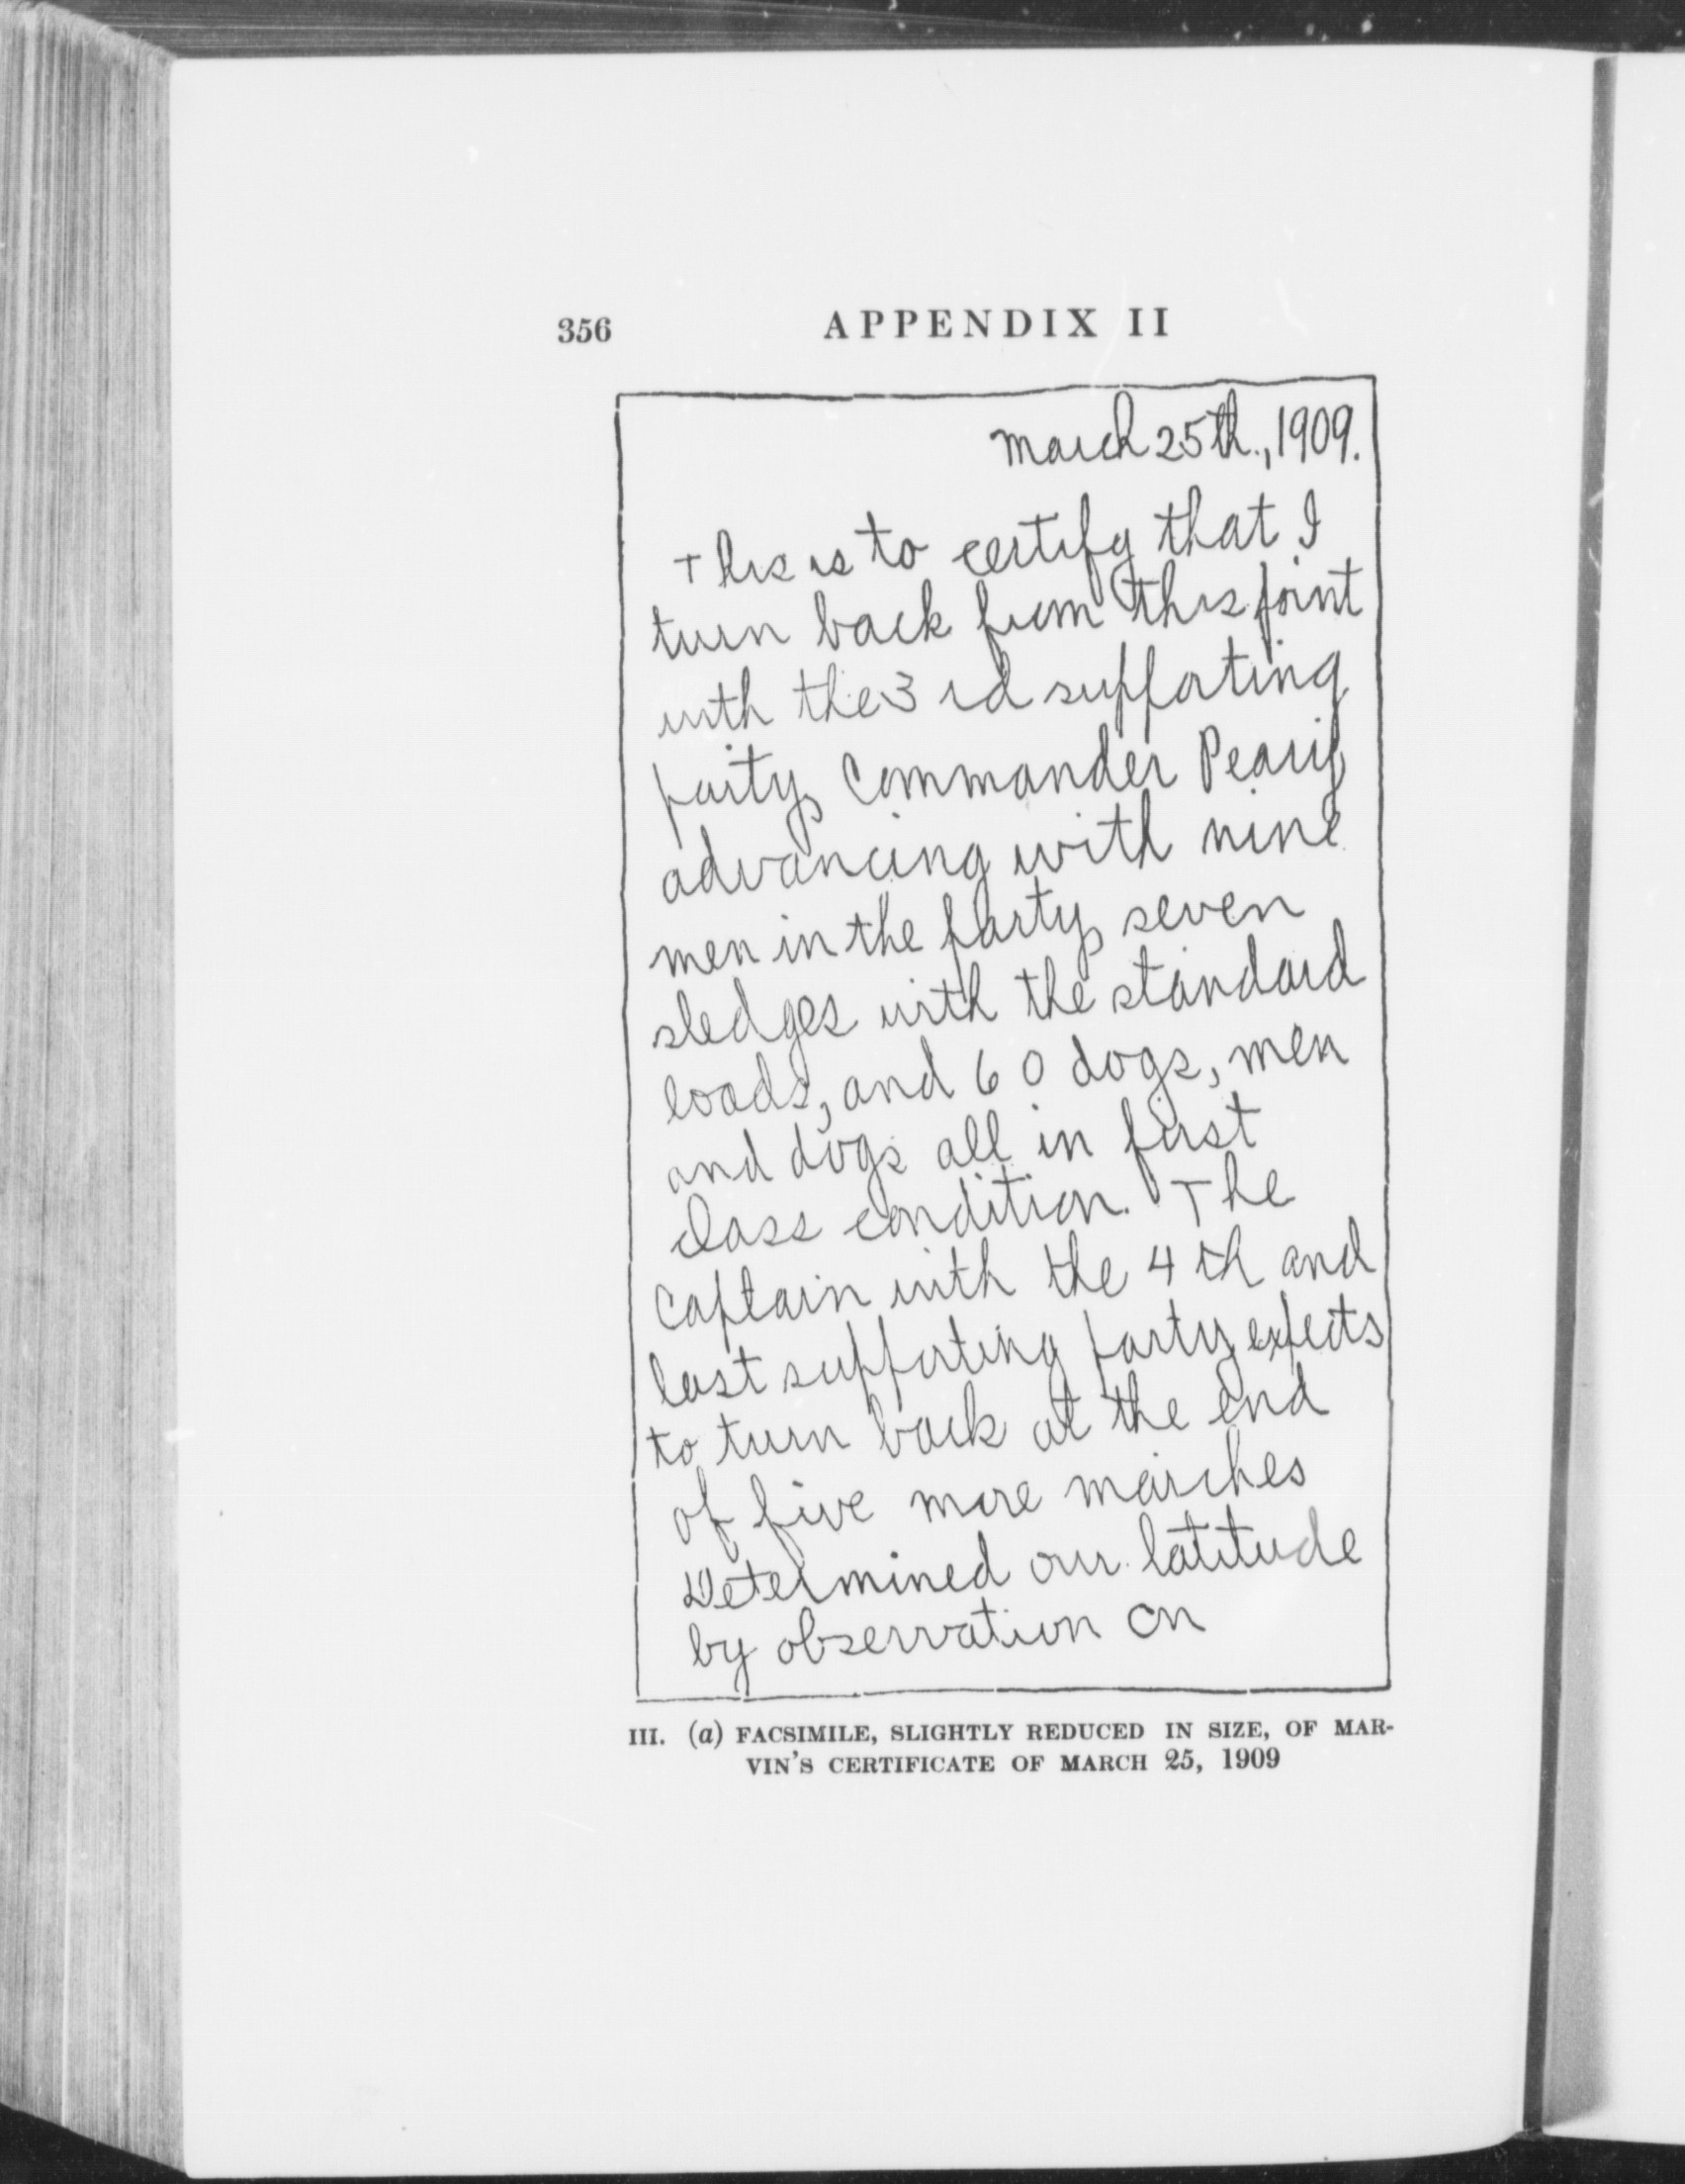 356 APPENDIX II
March 25th., 1909.
This is to certify that I
turn back from this point
with the 3 rd supporting
party, Commander Peary
advancing with nine
men in the party, seven
sledges with the standard
loads, and 60 dogs, men
and dogs all in first
class condition. The
captain with the 4 th and
last supporting party expects
to turn back at the end
of five more marches
Determined our latitude
by observation on
III. (a) FACSIMILE, SLIGHTLY REDUCED IN SIZE, OF MAR-
VIN'S CERTIFICATE OF MARCH 25, 1909